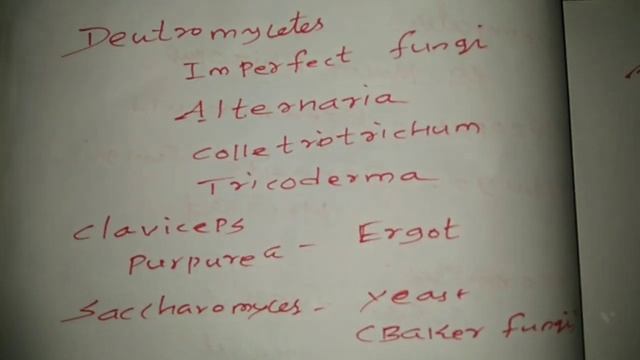 Deutromycetes
Imperfect fungi
Alternaria
Colletrotrichum
Tricoderma
Claviceps
purpurea - Ergot
Saccharomyces - yeast
(Baker fungi